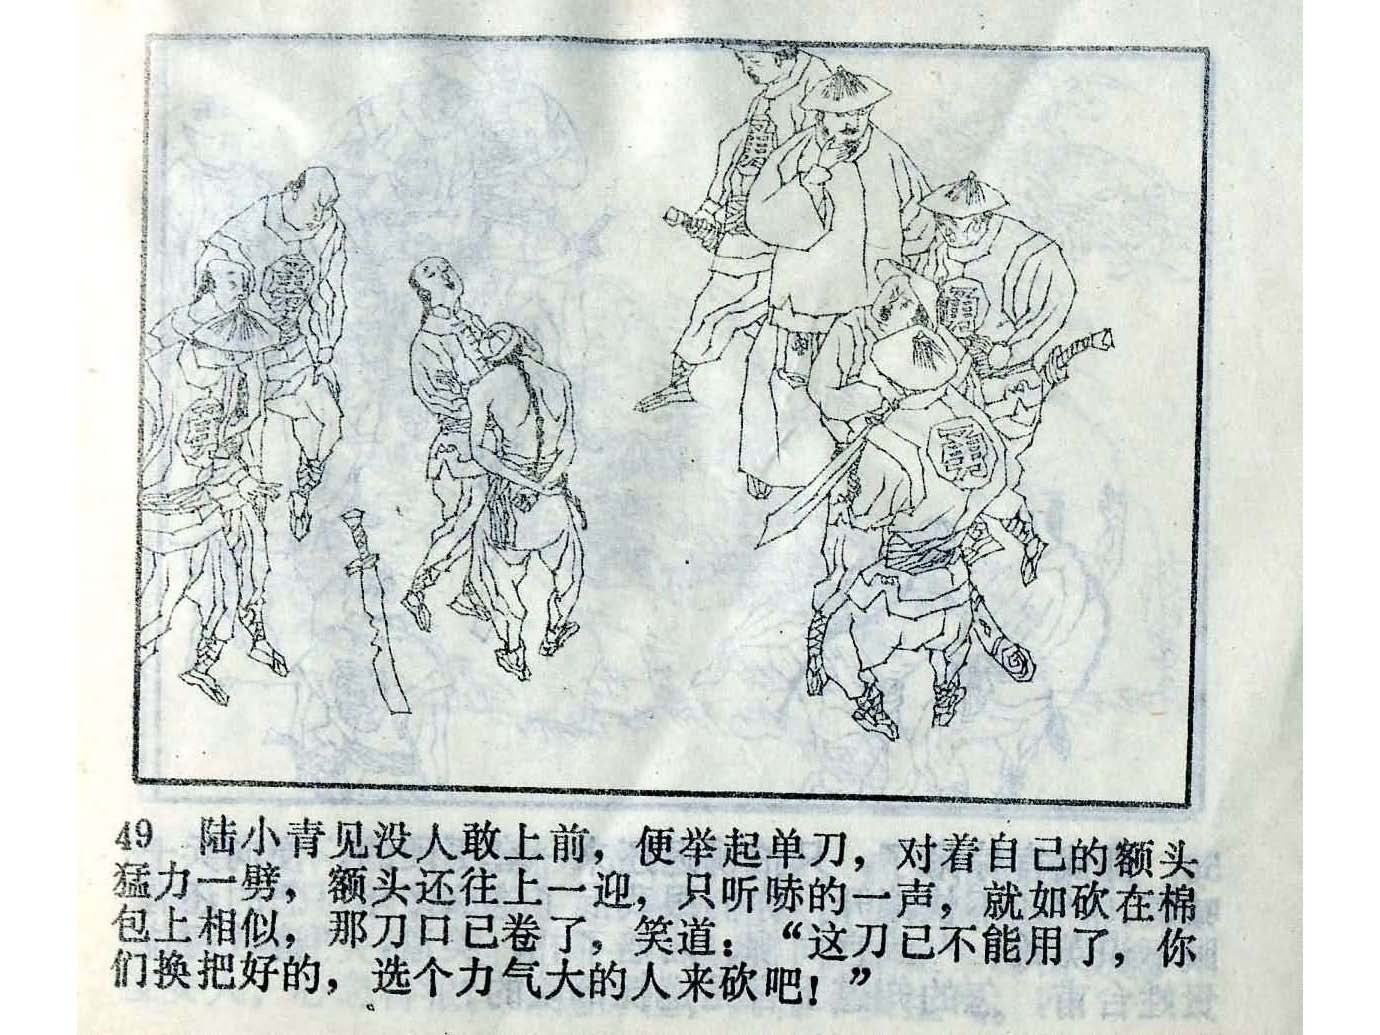 勇
勇
勇
勇
49 陆小青见没人敢上前，便举起单刀，对着自己的额头
猛力一劈，额头还往上一迎，只听哧的一声，就如砍在棉
包上相似，那刀口已卷了，笑道：“这刀已不能用了，你
们换把好的，选个力气大的人来砍吧！”